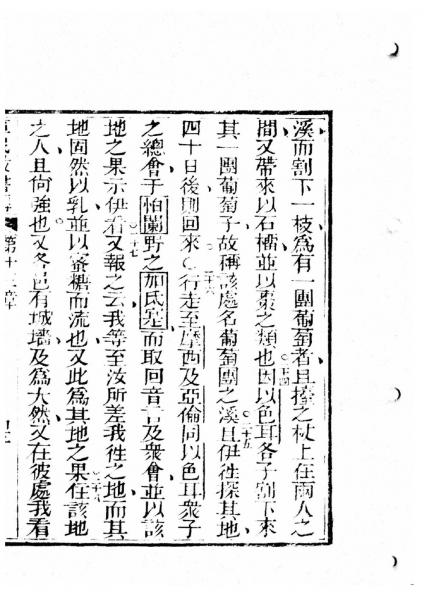 溪而割下一枝為有一團葡萄者且擡之杖上在兩人之
間又帶來以石榴並以棗之類也○二十四因以色耳各子割下來
其一團葡萄子故稱該處名葡萄團之溪○二十五且伊徃探其地
四十日後則回來○二十六行走至摩西及亞倫同以色耳衆子
之總會于怕闌野之加氏塞而取回音言及衆會並以該
地之果示伊看○二十七又報之云我等至汝所差我徃之地而其
地固然以乳並以蜜糖而流也又此為其地之果○二十八住該地
之人且尚強也又各邑有城墻及為大然又在彼處我看
第十三章